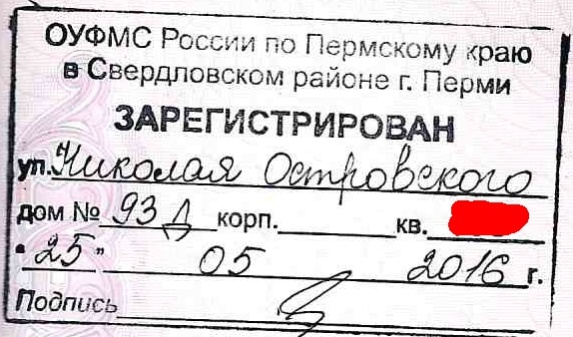 ОУФМС России по Пермскому краю
в Свердловском районе г. Перми
ЗАРЕГИСТРИРОВАН
ул. Николая Островского
дом № 93 Д корп. кв.
"25" 05 2016 г.
Подпись